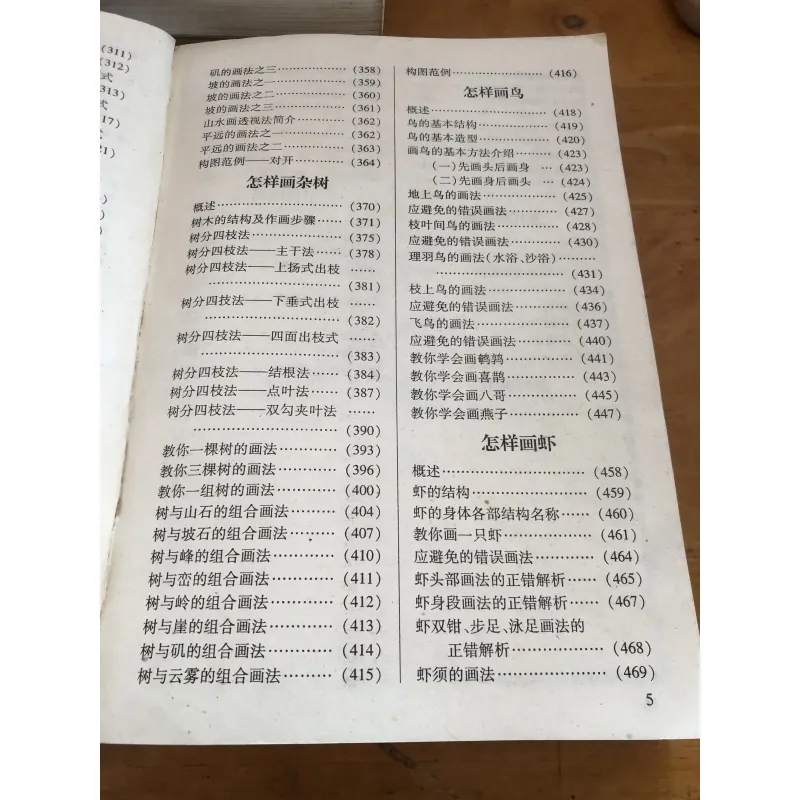 (311)
(312)
式
313)
式
17)
式
21)
)
)
矶的画法之三……………(358)
坡的画法之一……………(359)
坡的画法之二……………(360)
坡的画法之三……………(361)
山水画透视法简介………(362)
平远的画法之一…………(362)
平远的画法之二…………(363)
构图范例——对开………(364)
怎样画杂树
概述………………………(370)
树木的结构及作画步骤……(371)
树分四枝法………………(375)
树分四枝法——主干法……(378)
树分四枝法——上扬式出枝 ……
………………………(381)
树分四技法——下垂式出枝 ……
………………………(382)
树分四枝法——四面出枝式 ……
………………………(383)
树分四枝法——结根法……(384)
树分四枝法——点叶法……(387)
树分四枝法——双勾夹叶法 ……
………………………(390)
教你一棵树的画法…………(393)
教你三棵树的画法…………(396)
教你一组树的画法…………(400)
树与山石的组合画法………(404)
树与坡石的组合画法………(407)
树与峰的组合画法…………(410)
树与峦的组合画法…………(411)
树与岭的组合画法…………(412)
树与崖的组合画法…………(413)
树与矶的组合画法…………(414)
树与云雾的组合画法………(415)
构图范例…………………(416)
怎样画鸟
概述………………………(418)
鸟的基本结构……………(419)
鸟的基本造型……………(420)
画鸟的基本方法介绍………(423)
(一)先画头后画身 …(423)
(二)先画身后画头 …(424)
地上鸟的画法……………(425)
应避免的错误画法…………(427)
枝叶间鸟的画法……………(428)
应避免的错误画法…………(430)
理羽鸟的画法(水浴、沙浴)………
………………………(431)
枝上鸟的画法……………(434)
应避免的错误画法…………(436)
飞鸟的画法………………(437)
应避免的错误画法…………(440)
教你学会画鹌鹑……………(441)
教你学会画喜鹊……………(443)
教你学会画八哥……………(445)
教你学会画燕子……………(447)
怎样画虾
概述………………………(458)
虾的结构…………………(459)
虾的身体各部结构名称……(460)
教你画一只虾……………(461)
应避免的错误画法…………(464)
虾头部画法的正错解析……(465)
虾身段画法的正错解析……(467)
虾双钳、步足、泳足画法的
正错解析………………(468)
虾须的画法………………(469)
5